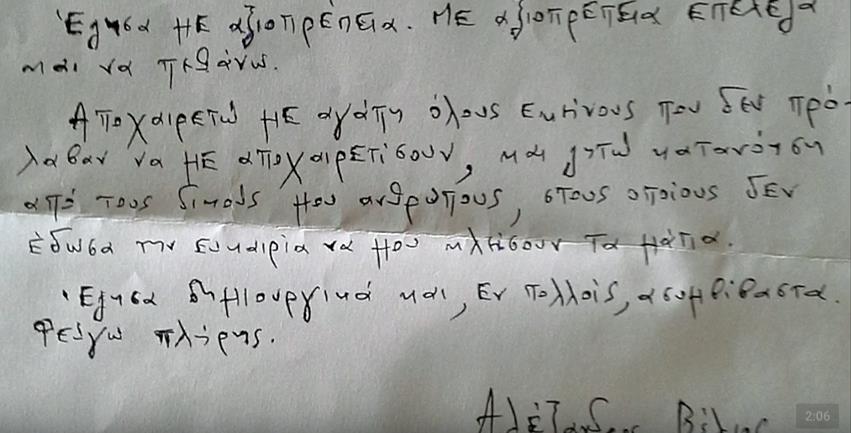 Έζησα με αξιοπρέπεια. Με αξιοπρέπεια επέλεξα
και να πεθάνω.
Αποχαιρετώ με αγάπη όλους εκείνους που δεν πρό-
λαβαν να με αποχαιρετίσουν, και ζητώ κατανόηση
από τους δικούς μου ανθρώπους, στους οποίους δεν
έδωσα την ευκαιρία να μου κλείσουν τα μάτια.
Έζησα δημιουργικά και, εν πολλοίς, ασυμβίβαστα.
Φεύγω πλήρης.
Αλέξανδρος Βέλιος
2:06